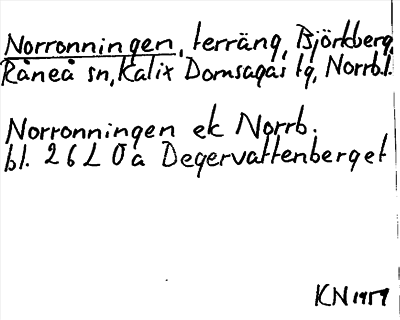 Norronningen, terräng, Björkberg,
Råneå sn, Kalix Domsagas tg, Norrb.l.
Norronningen ek Norrb.
bl. 26 L 0a Degervattenberget
KN 1959